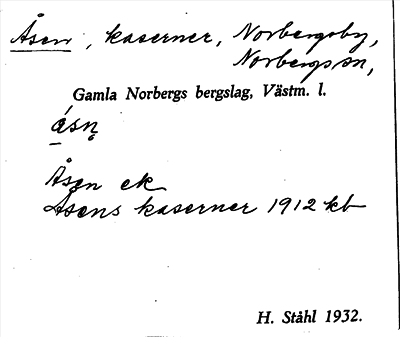 Åsen, kaserner, Norbergsby,
Norbergs sn,
Gamla Norbergs bergslag, Västm. l.
åsn̥
Åsen ek
Åsens kaserner 1912 kb
H. Ståhl 1932.